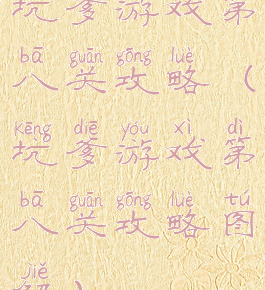 坑爹游戏第
bā guān gōng luè
八关攻略（
kēng diē yóu xì dì
坑爹游戏第
bā guān gōng luè tú
八关攻略图
jiě
解）